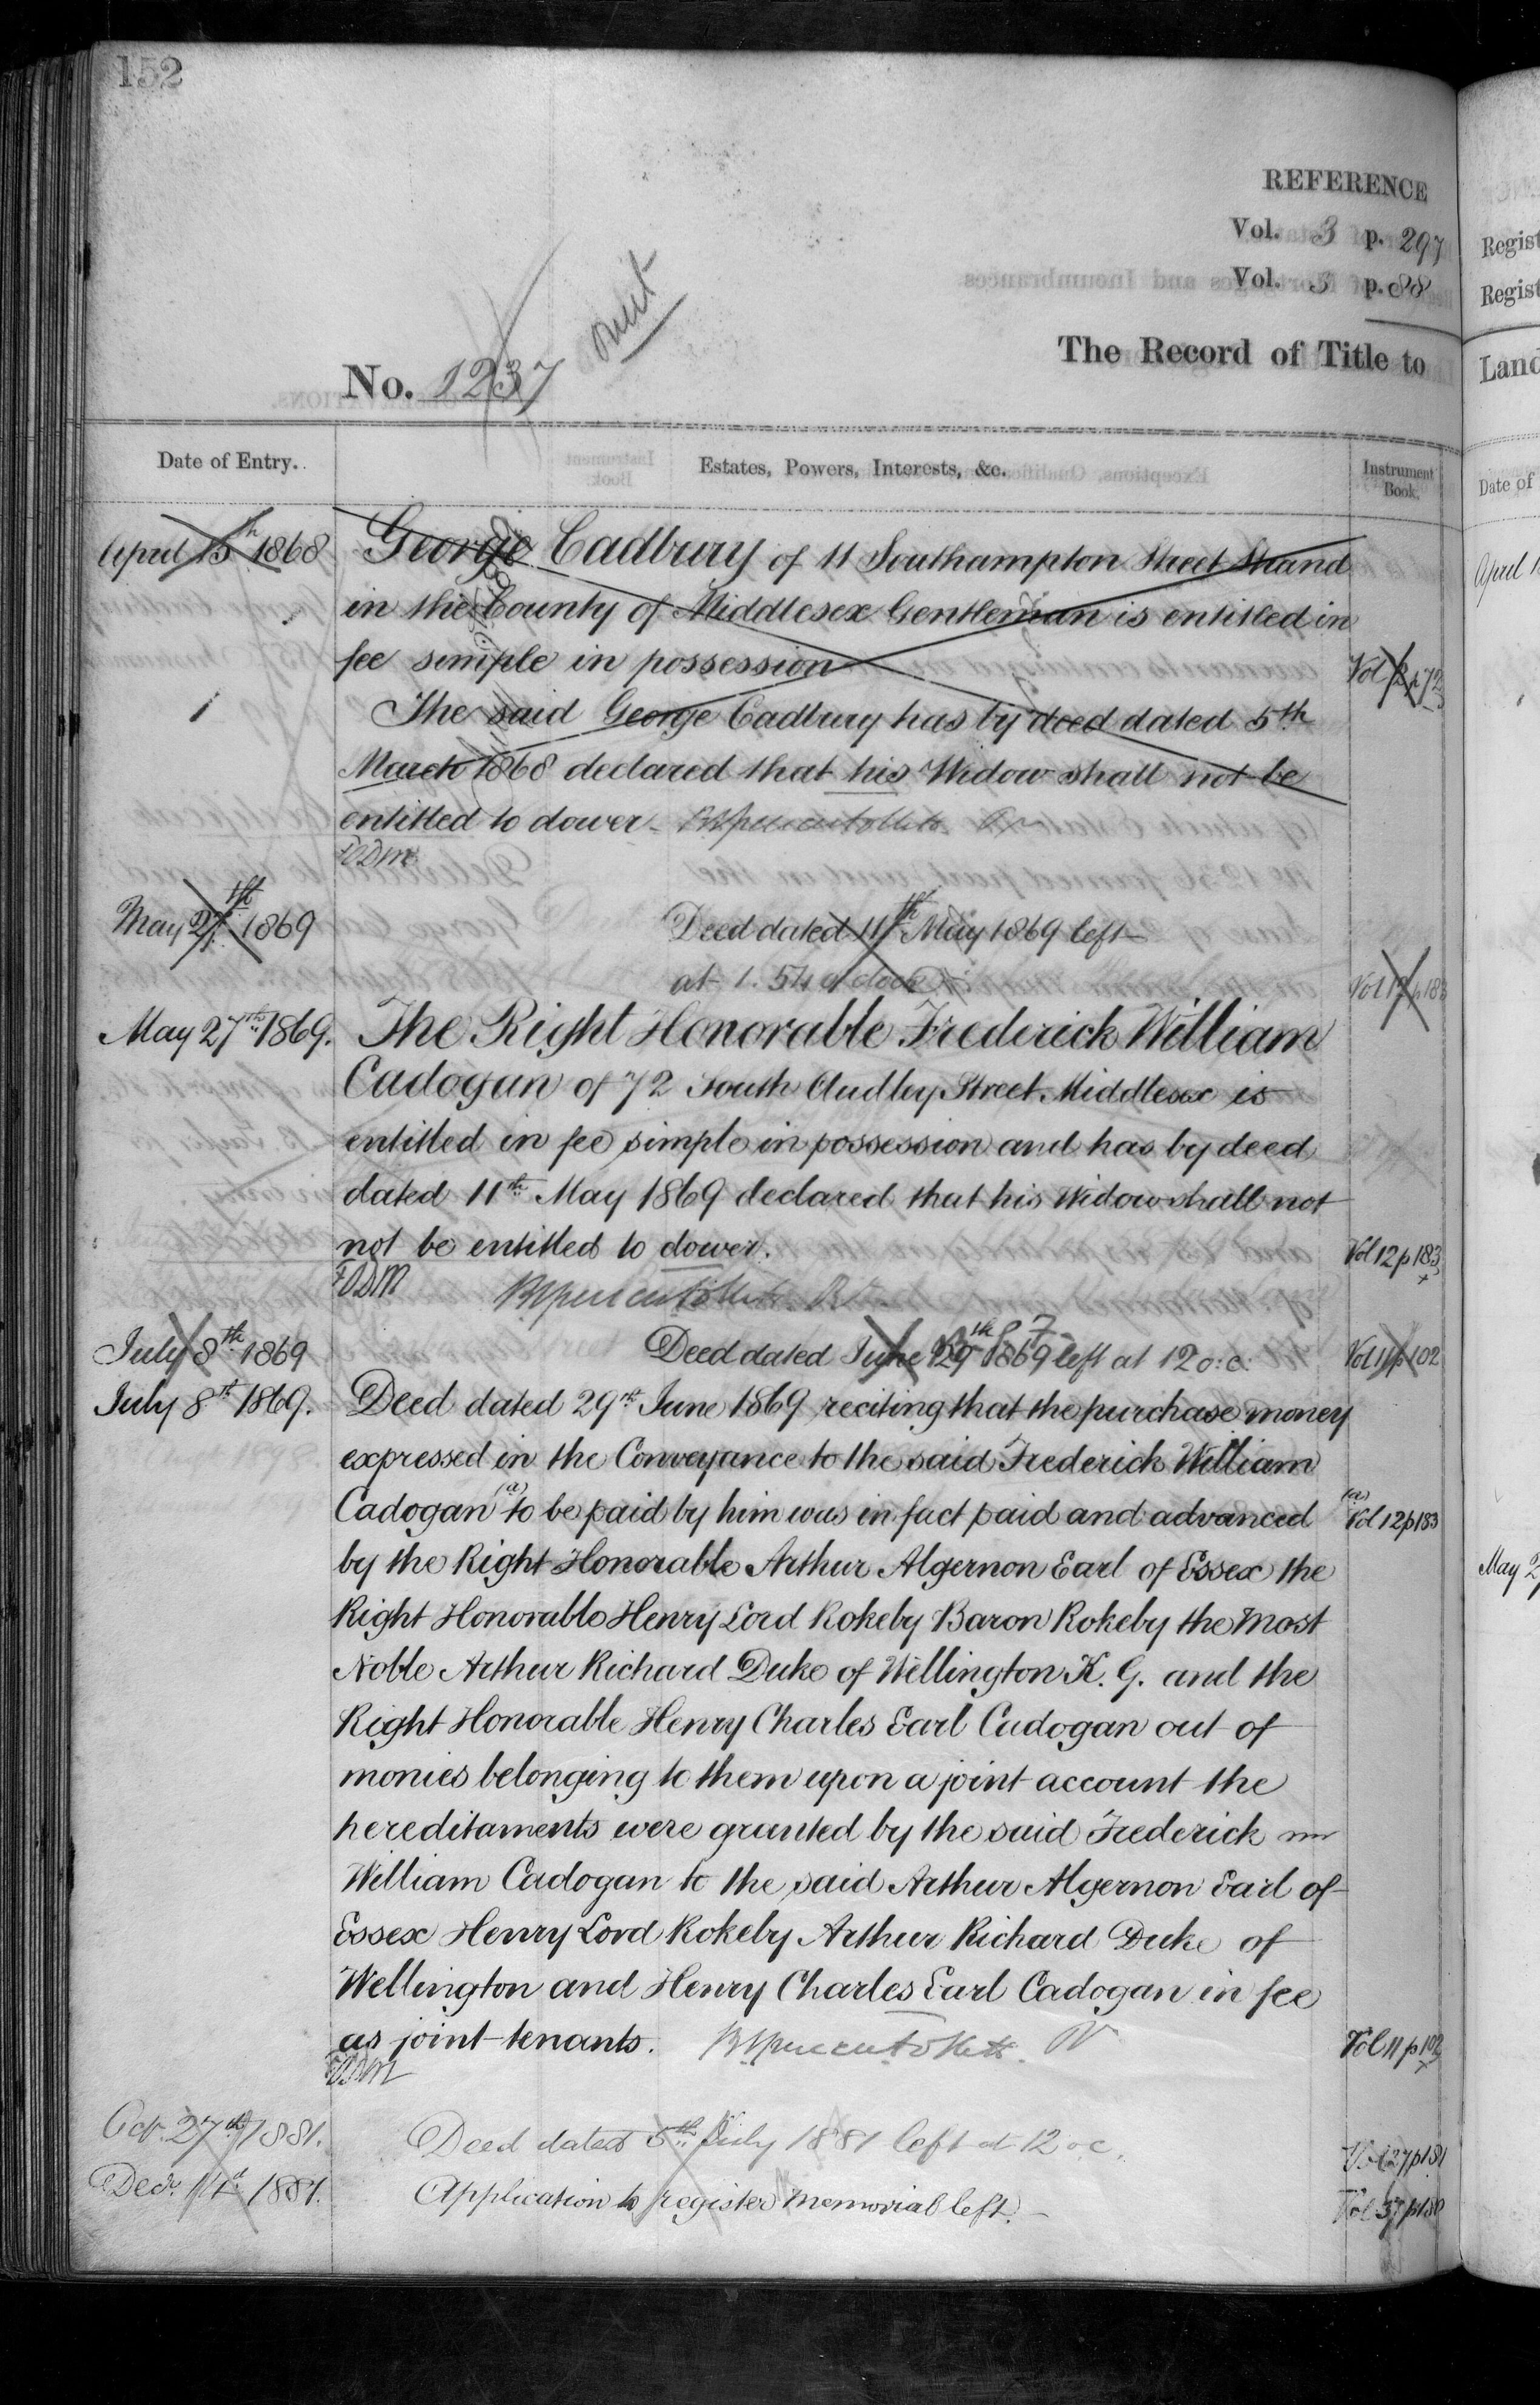 152
REFERENCE
Vol. 3 p. 297
Vol. 3 p. 88
No. 1237
The Record of Title to
Date of Entry.
Estates, Powers, Interests, &c.
Instrument
Book.
April 15th 1868 George Cadbury of 11 Southampton Street Strand
in the County of Middlesex Gentleman is entitled in
fee simple in possession Vol p 72
The said George Cadbury has by deed dated 5th
March 1868 declared that his Widow shall not be
entitled to dower
May 27th 1869 Deed dated 11th May 1869 left
at 1.54 o'clock Vol 12 p 183
May 27th 1869. The Right Honorable Frederick William
Cadogan of 72 South Audley Street Middlesex is
entitled in fee simple in possession and has by deed
dated 11th May 1869 declared that his Widow shall not
not be entitled to dower. Vol 12 p 183
July 8th 1869 Deed dated June 29th 1869 left at 12 o:c: Vol 11 p 102
July 8th 1869. Deed dated 29th June 1869 reciting that the purchase money
expressed in the Conveyance to the said Frederick William
Cadogan (a) to be paid by him was in fact paid and advanced (a) Vol 12 p 183
by the Right Honorable Arthur Algernon Earl of Essex the
Right Honorable Henry Lord Rokeby Baron Rokeby the Most
Noble Arthur Richard Duke of Wellington K. G. and the
Right Honorable Henry Charles Earl Cadogan out of
monies belonging to them upon a joint account the
hereditaments were granted by the said Frederick
William Cadogan to the said Arthur Algernon Earl of
Essex Henry Lord Rokeby Arthur Richard Duke of
Wellington and Henry Charles Earl Cadogan in fee
as joint tenants. Vol 11 p 102
Oct. 27th 1881. Deed dated 5th July 1881 left at 12 o.c. Vol 27 p 181
Decr. 1881. Application to register Memorial left.
Regist
Regist
Land
Date of
April 1
May 2